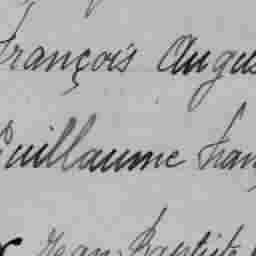 François Augus
Guillaume Fran
Jean Baptiste